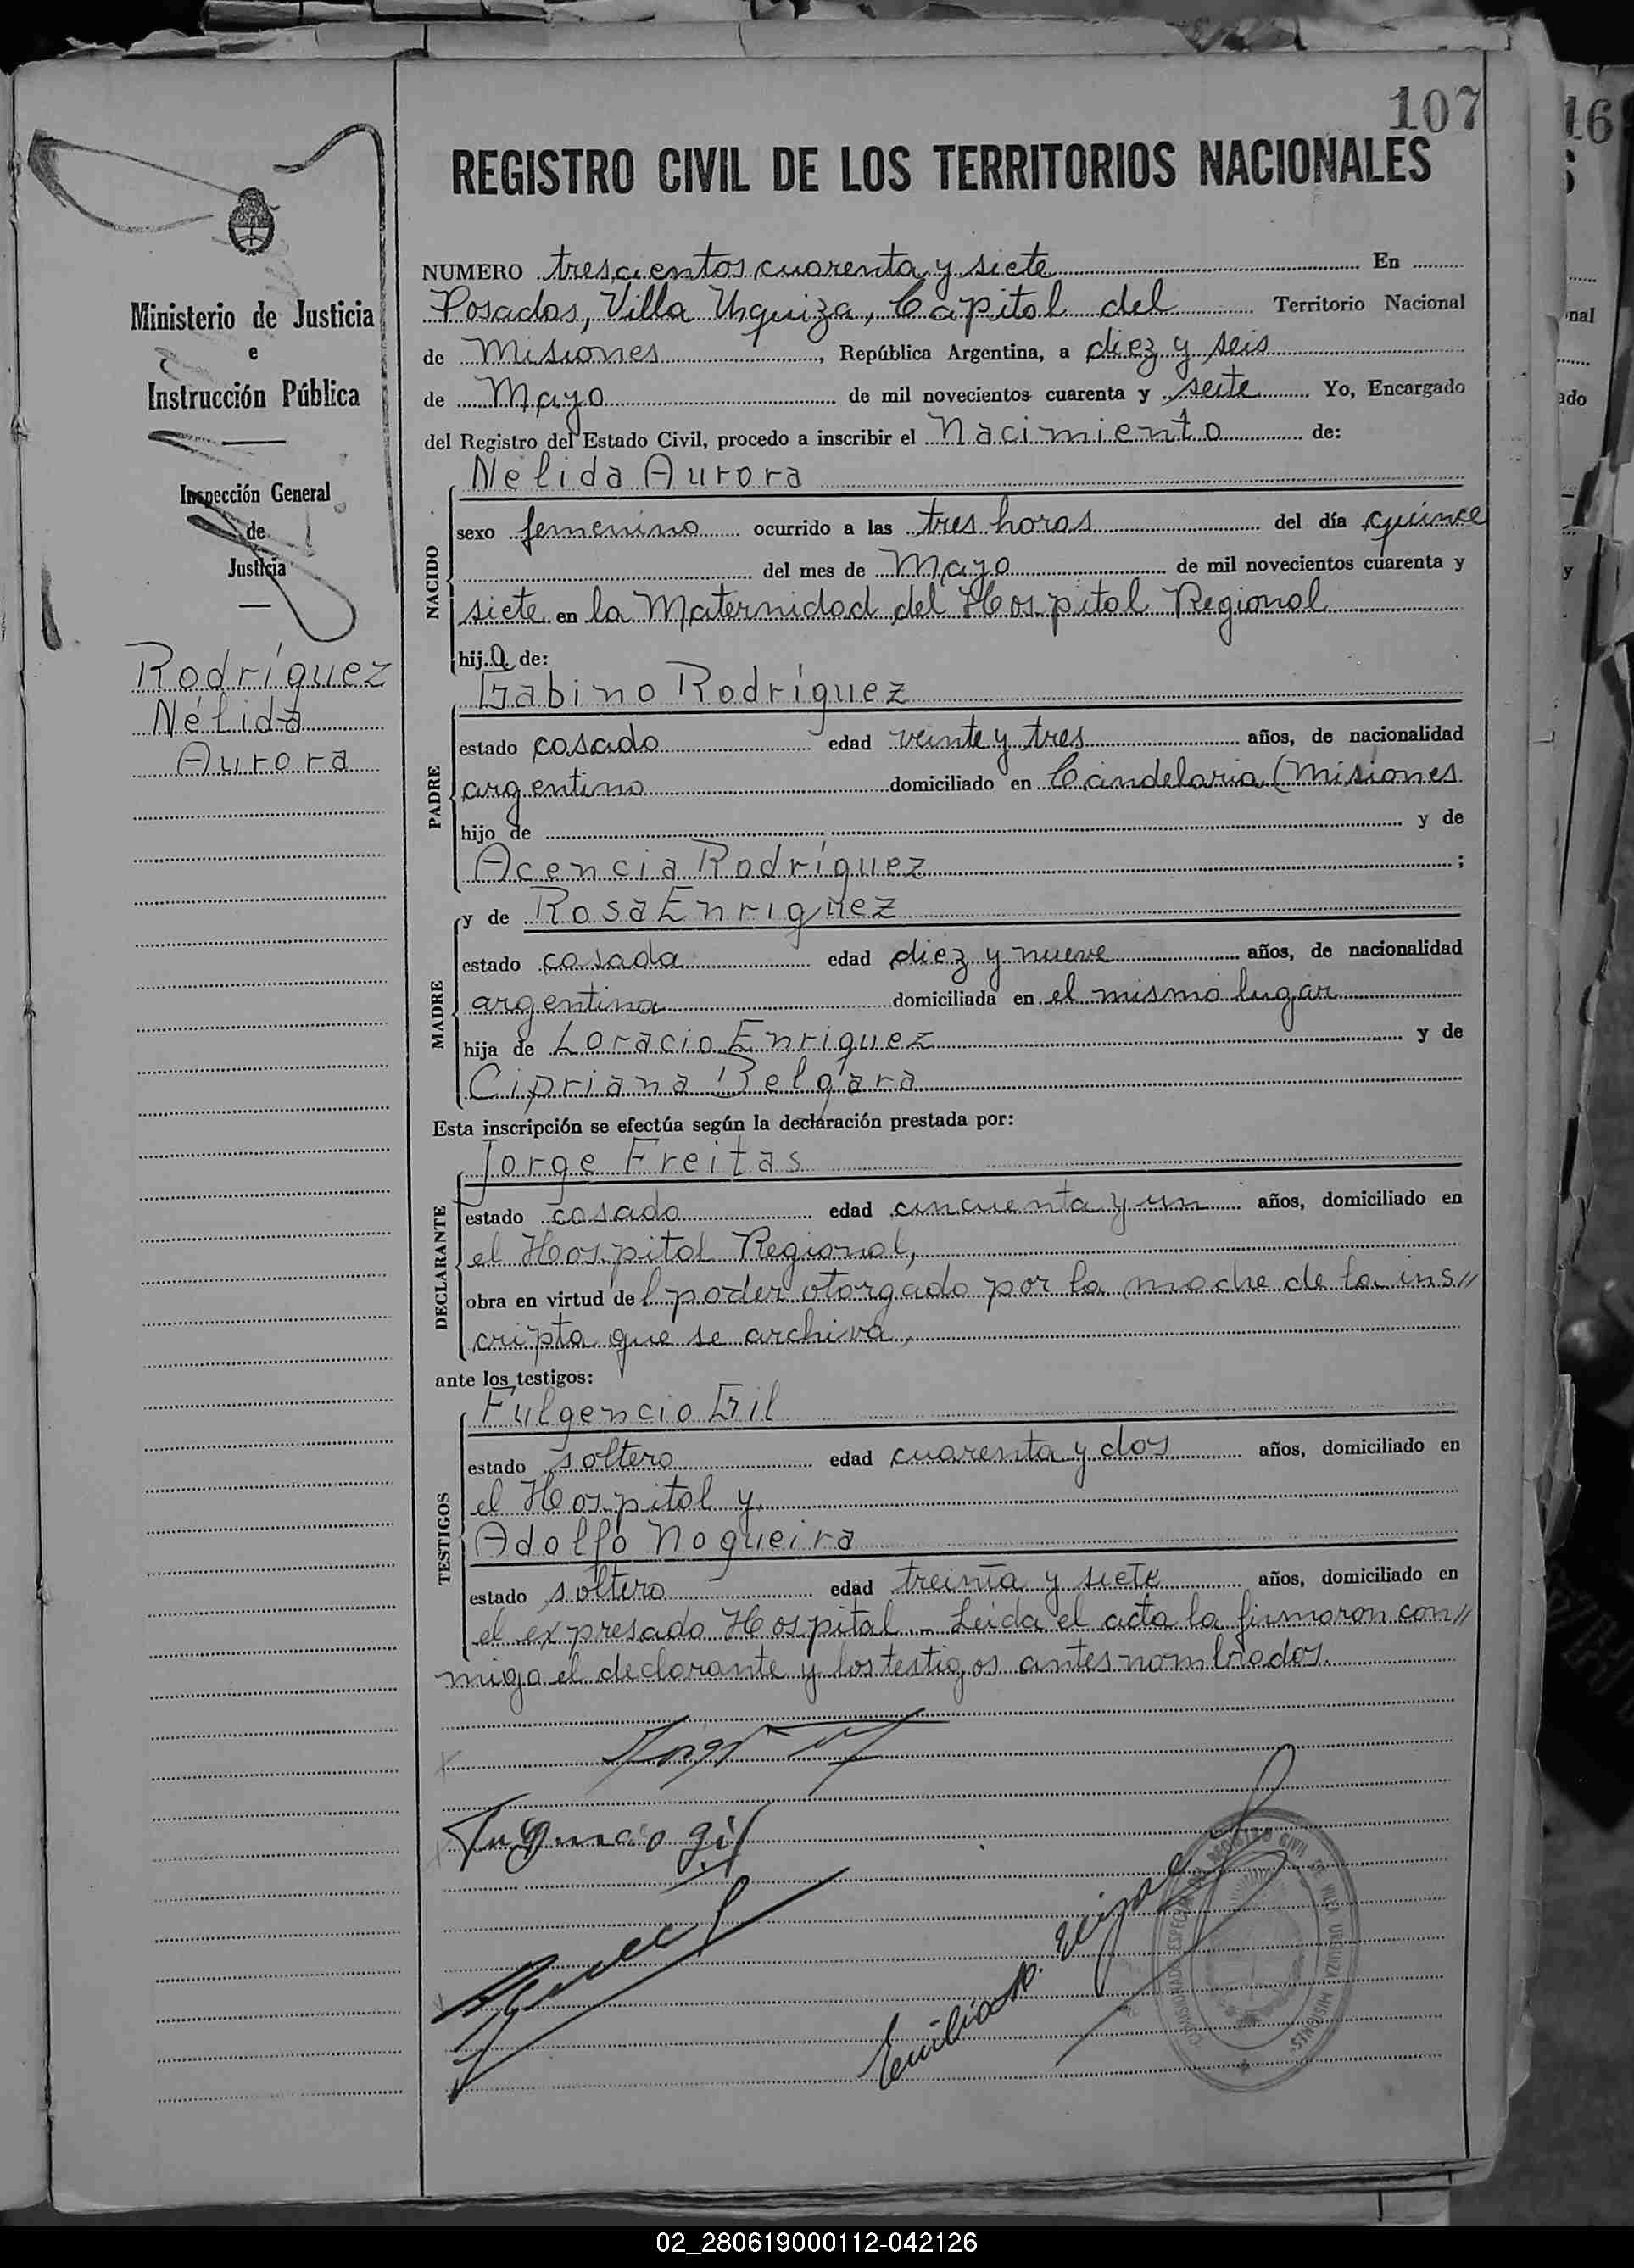 107
16
REGISTRO CIVIL DE LOS TERRITORIOS NACIONALES
Ministerio de Justicia
e
Instrucción Pública
Inspección General
de
Justicia
Rodríguez
Nélida
Aurora
NUMERO trescientos cuarenta y siete En
Posadas, Villa Urquiza, Capital del Territorio Nacional
de Misiones, República Argentina, a diez y seis
de Mayo de mil novecientos cuarenta y siete Yo, Encargado
del Registro del Estado Civil, procedo a inscribir el Nacimiento de:
NACIDO
Nélida Aurora
sexo femenino ocurrido a las tres horas del día quince
del mes de Mayo de mil novecientos cuarenta y
siete en la Maternidad del Hospital Regional
hija de:
PADRE
Gabino Rodríguez
estado casado edad veinte y tres años, de nacionalidad
argentino domiciliado en Candelaria (Misiones
hijo de y de
Acencia Rodríguez ;
MADRE
y de Rosa Enriquez
estado casada edad diez y nueve años, de nacionalidad
argentina domiciliada en el mismo lugar
hija de Loracio Enriquez y de
Cipriana Belgara
Esta inscripción se efectúa según la declaración prestada por:
DECLARANTE
Jorge Freitas
estado casado edad cincuenta y un años, domiciliado en
el Hospital Regional,
obra en virtud del poder otorgado por la madre de la ins//
cripta que se archiva,
ante los testigos:
TESTIGOS
Fulgencio Gil
estado soltero edad cuarenta y dos años, domiciliado en
el Hospital y
Adolfo Nogueira
estado soltero edad treinta y siete años, domiciliado en
el expresado Hospital - Leida el acta la firmaron con//
migo el declarante y los testigos antes nombrados.
gil
Emilia
REGISTRO CIVIL DE VILLA URQUIZA MISIONES
02_280619000112-042126